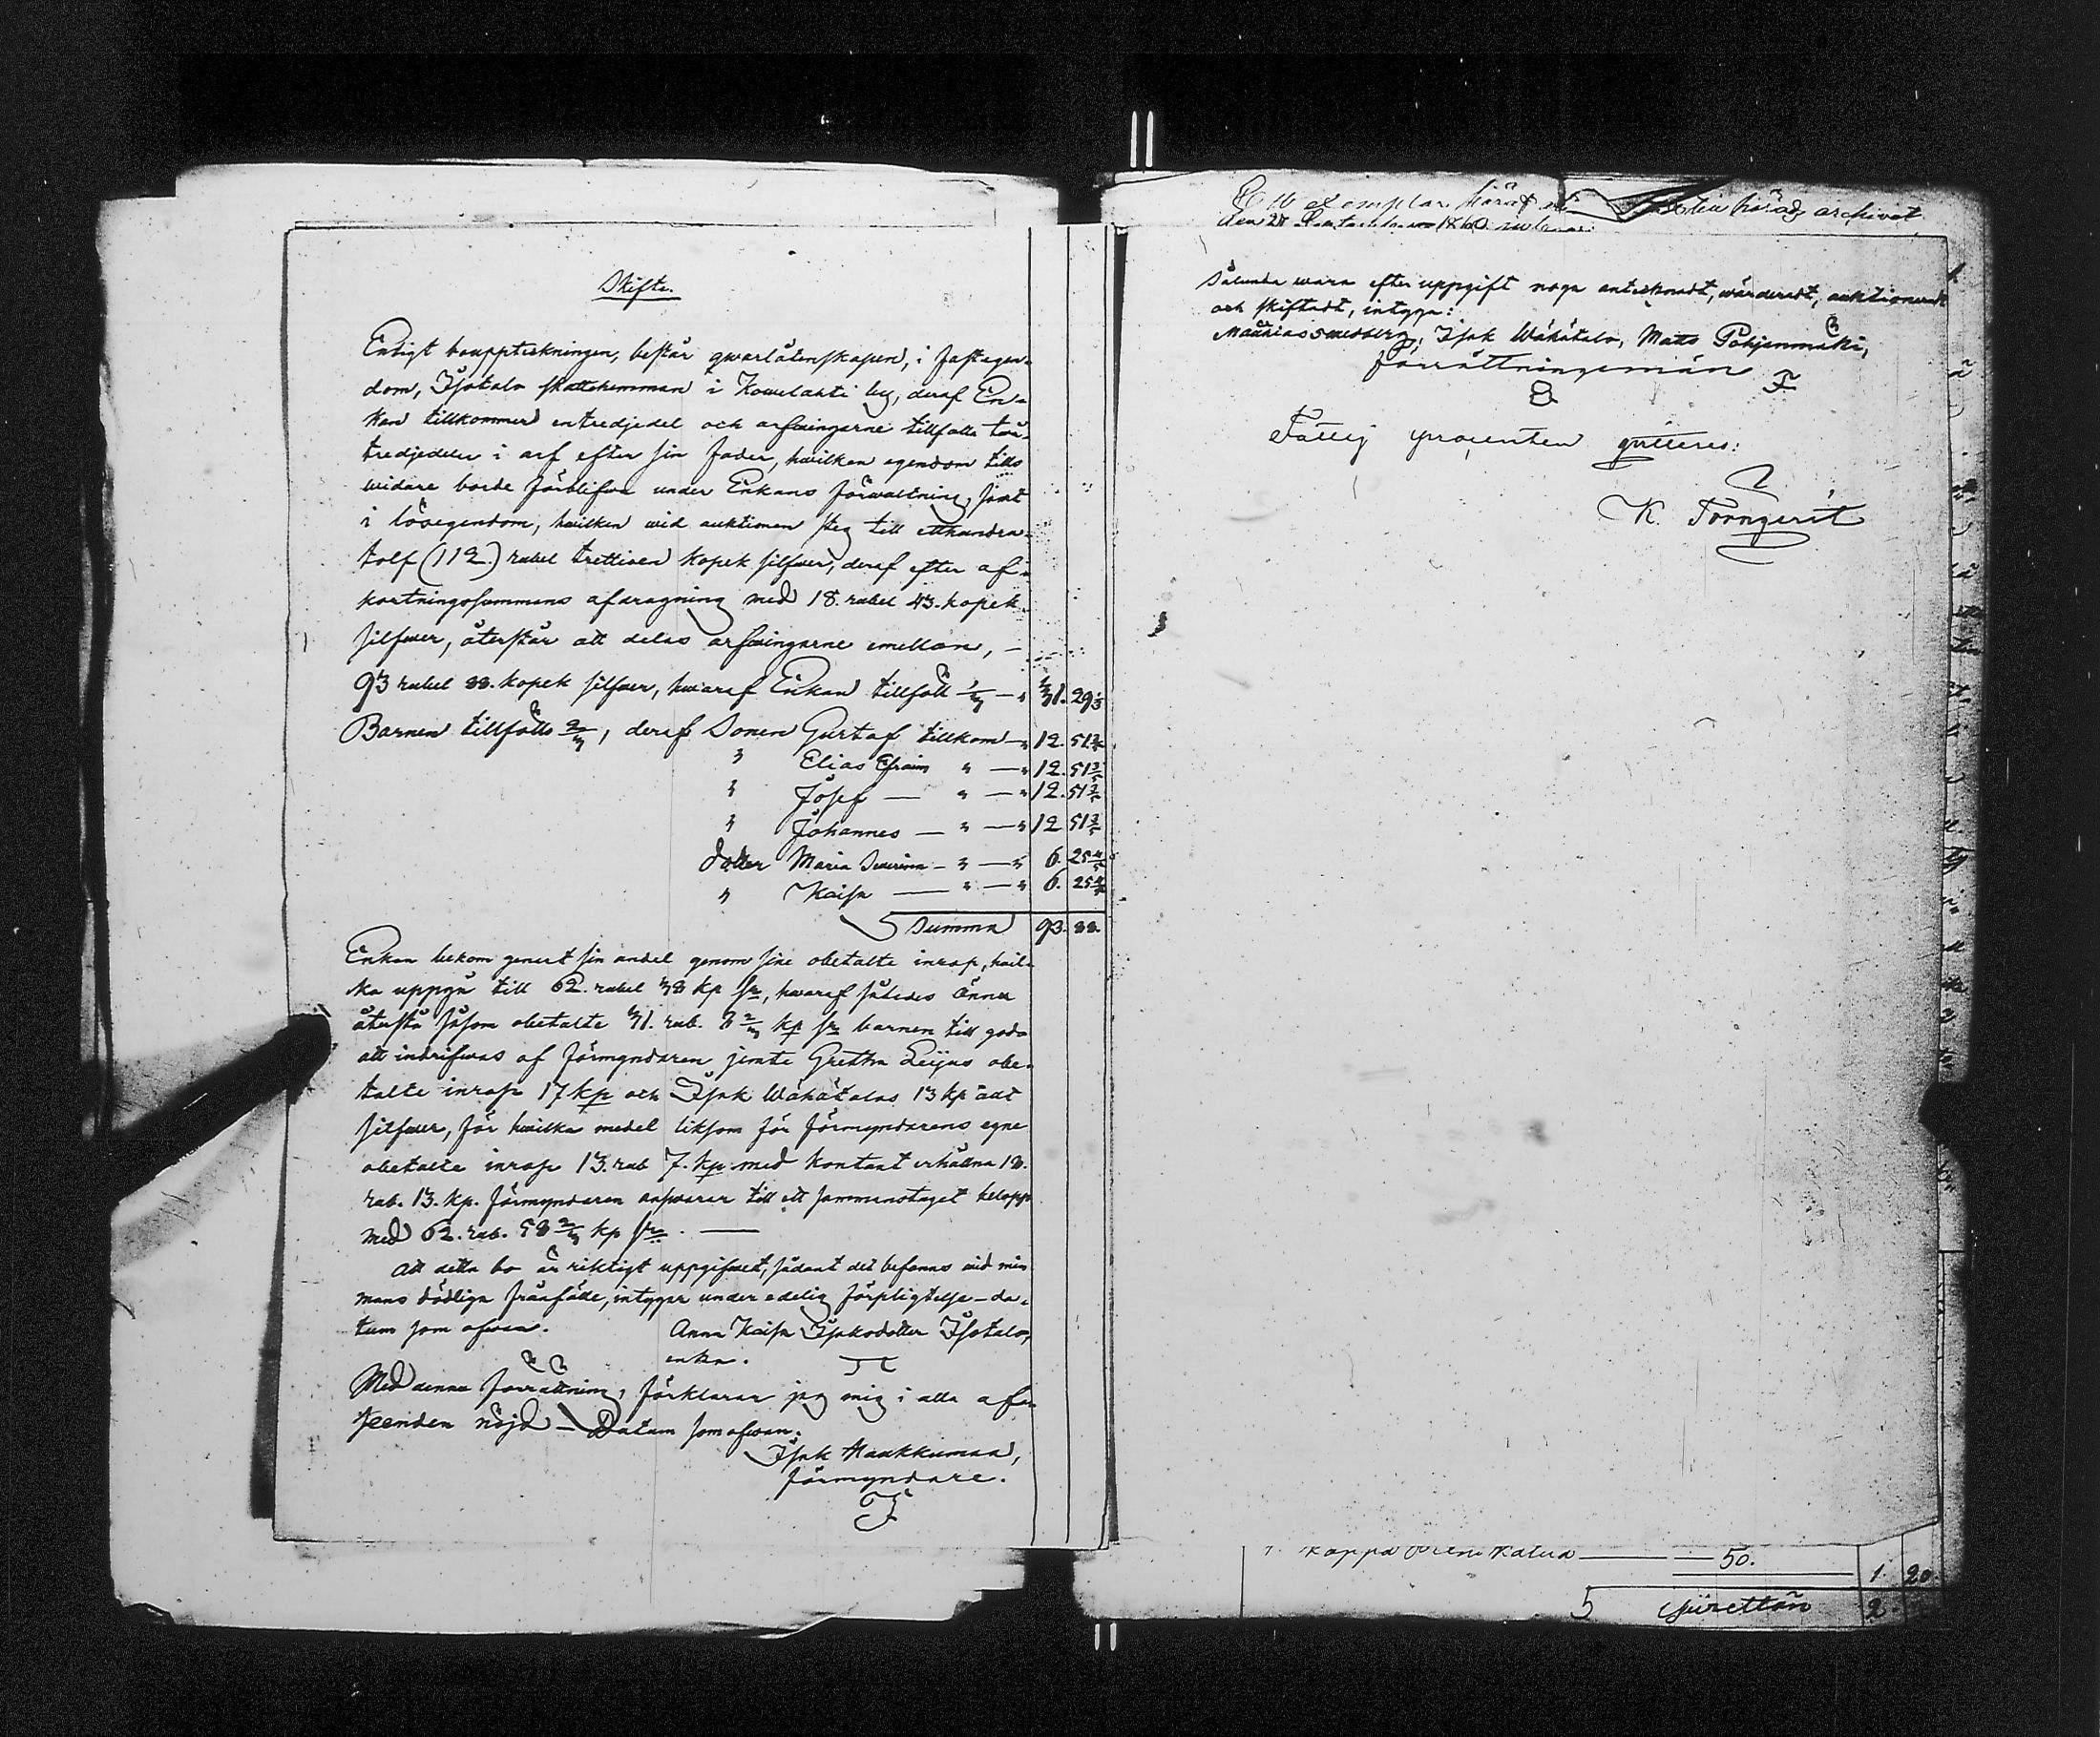 Skifte.
Enligt bouppteckningen, består qwarlåtenskapen, i fastegen-
dom, Isotalo skattehemman i Kowelahti by, deraf En-
kan tillkommer entredjedel och arfwingarne tillfalla twå
tredjedelar i arf efter sin fader, hwilken egendom tills
widare borde förblifwa under Enkans förwaltning, samt
i lösegendom, hwilken wid auktionen steg till etthundra-
tolf (112.) rubel trettioen kopek silfwer, deraf efter af-
kortningssummans afdragning med 18. rubel 43. kopek
silfwer, återstår att delas arfwingarne emellan, —
93 rubel 88. kopek silfwer, hwaraf Enkan tillföll 1/3 — " 31. 29 1/3
Barnen tillfölls 2/3, deraf Sonen Gustaf tillkom — " 12. 51 3/5
" Elias Efraim " — " 12. 51 3/5
" Josef — " — " 12. 51 3/5
" Johannes — " — " 12 51 3/5
dotter Maria Severina — " — " 6. 25 4/5
" Kaisa — " — " 6. 25 4/5
Summa 93. 88.
Enkan bekom genast sin andel genom sine obetalte inrop, hwil-
ka uppgå till 62. rubel 38 kp sr, hwaraf således ännu
återstå såsom obetalte 31. rub. 8 2/3 kp sr barnen till godo
att indrifwas af förmyndaren jemte Gretha Leijus obe-
talte inrop 17 kp och Isak Wähätalos 13 kp allt
silfwer, för hwilka medel liksom för förmyndarens egne
obetalte inrop 13. rub 7. kp med kontant erhållna 18.
rub. 13. kp. förmyndaren answarar till ett sammanstaget belopp
med 62. rub. 58 2/3 kp sr. —
Att detta bo är riktigt uppgifwet, sådant det befanns wid min
mans dödliga frånfälle, intygar under edelig förpligtelse — da-
tum som ofwan. Anna Kaisa Isaksdotter Isotalo,
enka.
Med denna förrättning, förklarar jag mig i alla af-
seenden nöjd — Datum som ofwan.
Isak Haukkumaa,
förmyndare.
Ett exemplar häraf häradsarchivet
den 28 September 1860
Sålunda wara efter uppgift noga antecknadt, wärderadt, auktioneradt
och skiftadt, intyga:
Matthias Smedberg, Isak Wähätalo, Matts Pohjenmäki,
förrättningsmän
Fattig procenten qvitteras:
K. Forngerit
kappa 50. 1. 20
5 2.